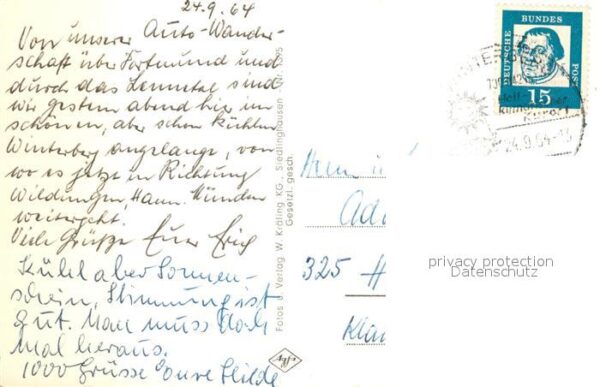 24.9.64
Von unserer Auto-Wander-
schaft über Dortmund und
durch das Lennetal sind
wir gestern abend hier im
schönen, aber schon kühlen
Winterberg angelangt, von
wo es jetzt in Richtung
Wildungen, Hann. Münden
weitergeht.
Viele Grüße Euer Erich
Kühl aber Sonnen-
schein, Stimmung ist
gut. Man muss doch
mal heraus.
1000 Grüsse Eure Hilde
Fotos u. Verlag W. Kräling KG., Siedlinghausen
Gesetzl. gesch.
Agfa
Herrn u.
325 H
Kla
DEUTSCHE BUNDES POST
15
24.9.64-13
privacy protection
Datenschutz